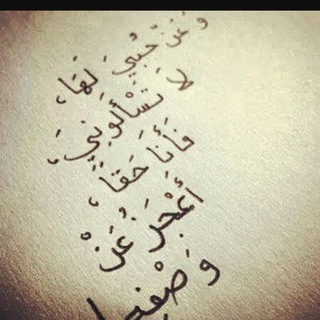 وَ عَنْ حُبِّي لَهَا،
لَا تَسْأَلُونِي،
فَأَنَا حَقًّا،
أَعْجَزُ عَنْ
وَصْفِهِا